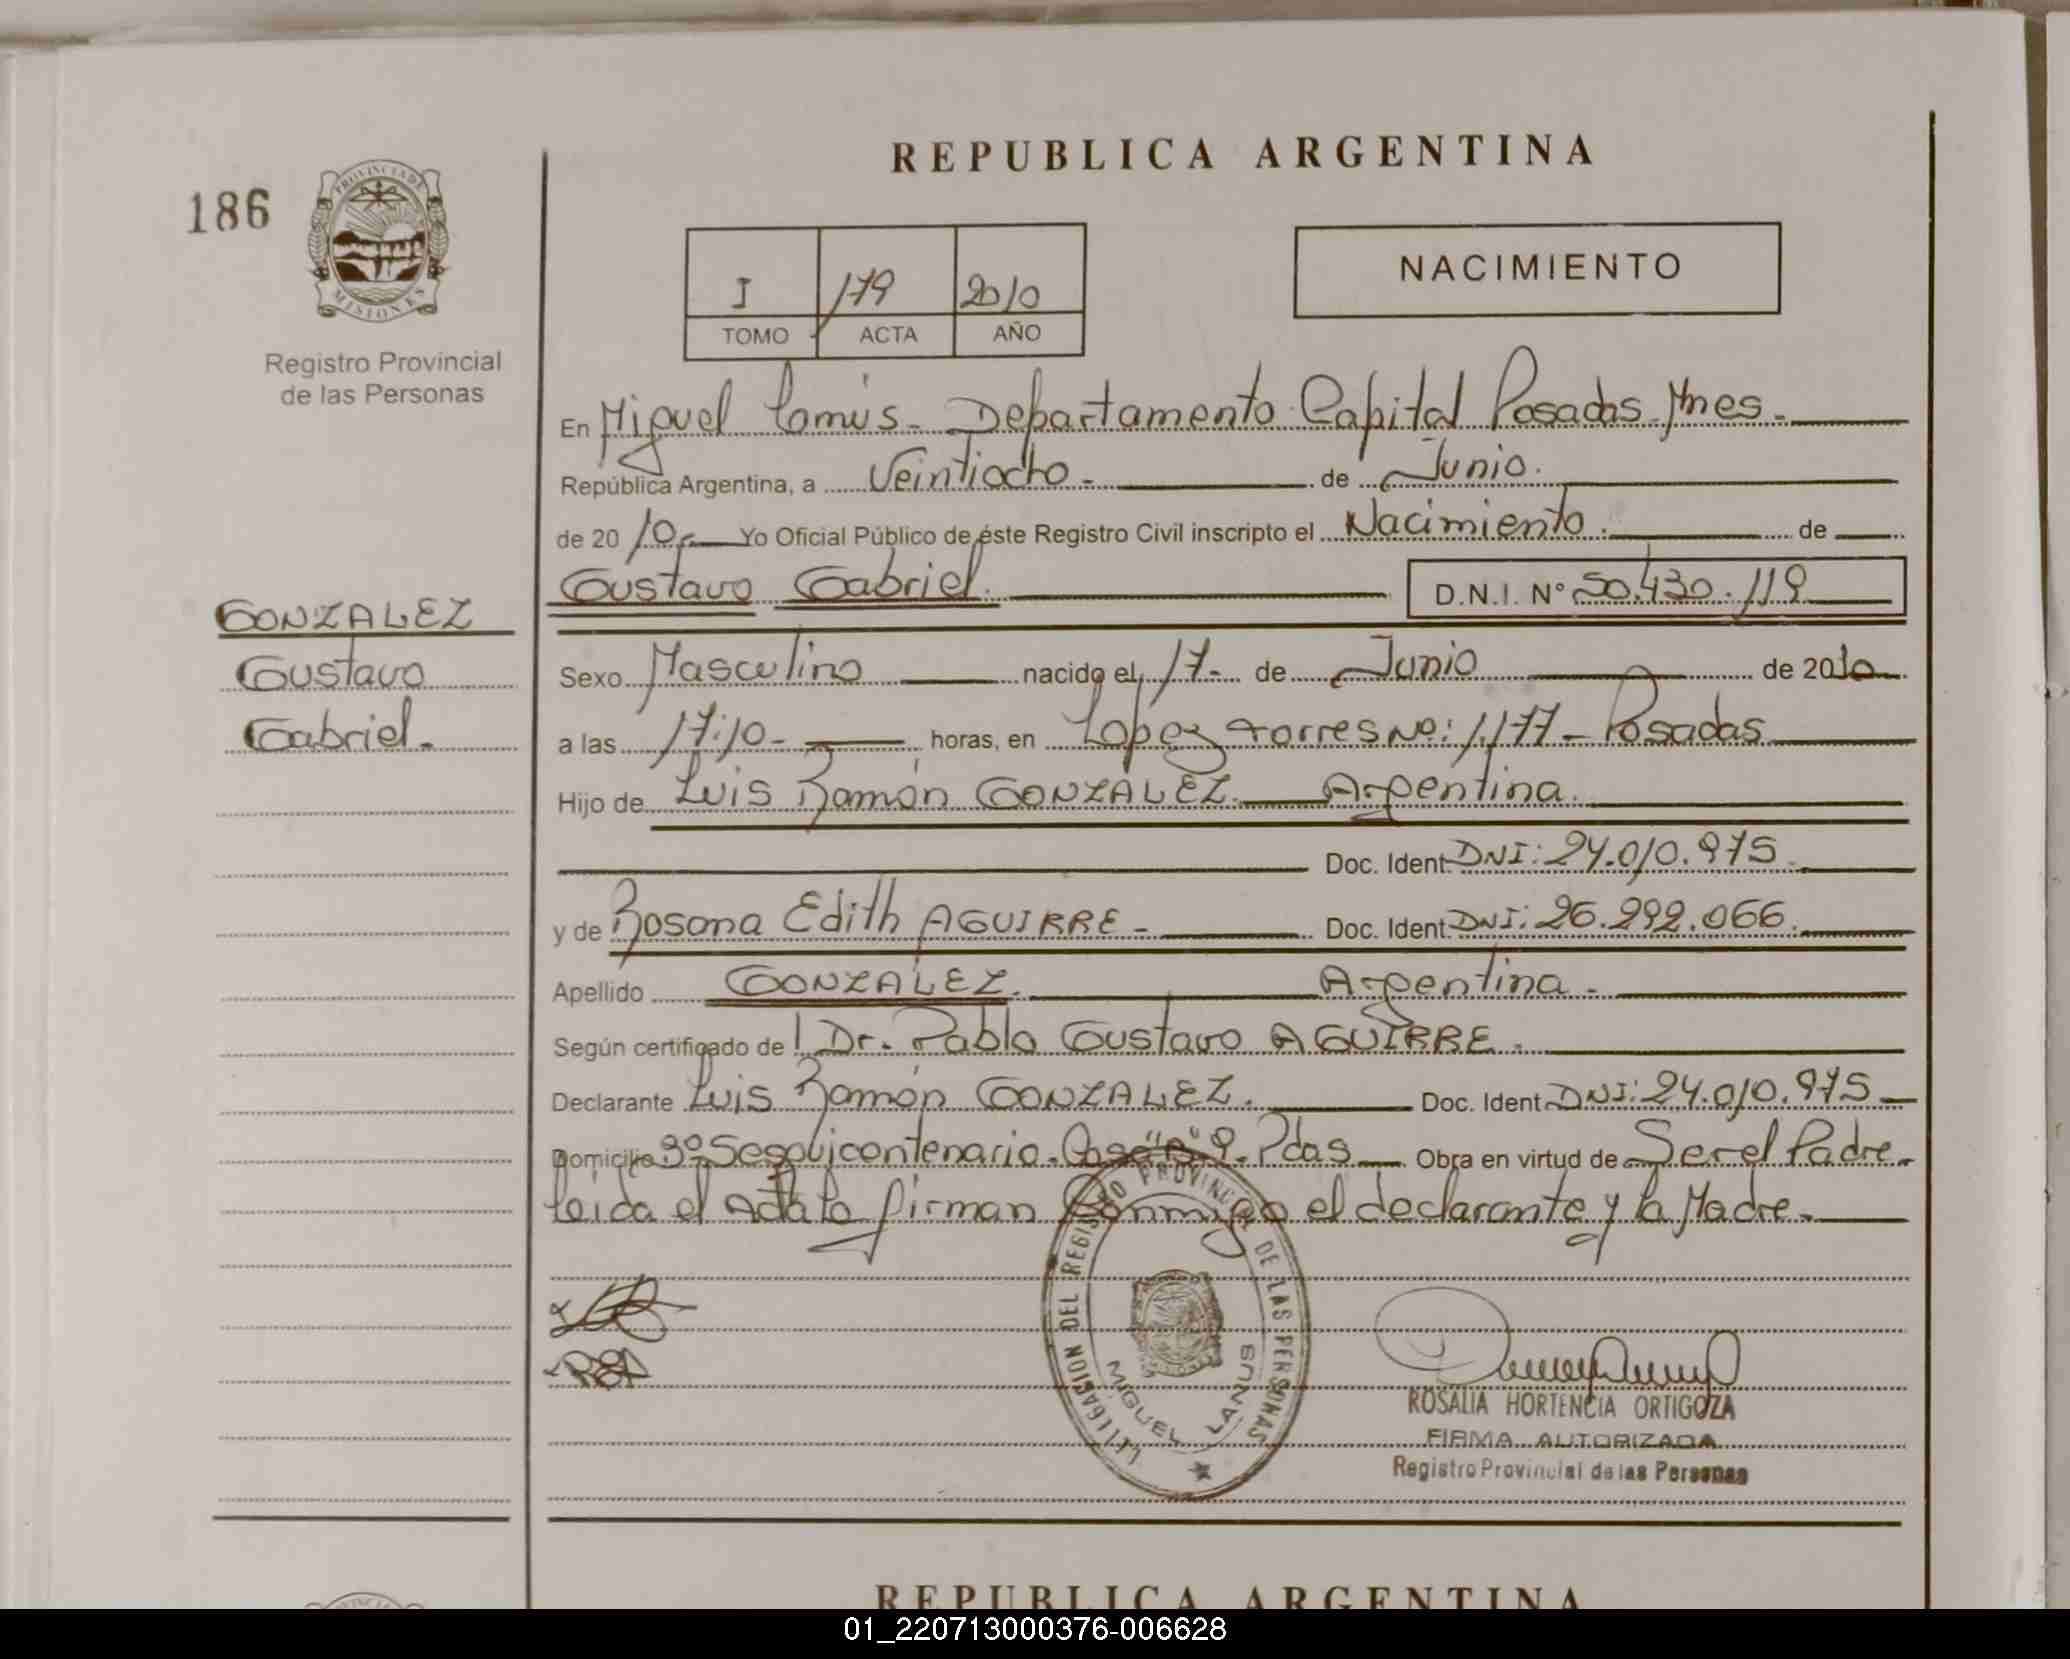 REPUBLICA ARGENTINA
186
PROVINCIA DE
MISIONES
Registro Provincial
de las Personas
I 179 2010
TOMO ACTA AÑO
NACIMIENTO
En Miguel Lanus - Departamento Capital Posadas - Mnes -
República Argentina, a Veintiocho - de Junio.
de 2010 - Yo Oficial Público de éste Registro Civil inscripto el Nacimiento. de
Gustavo Gabriel. D.N.I. Nº 50.430.119
GONZALEZ
Gustavo
Gabriel.-
Sexo Masculino nacido el 17 - de Junio de 2010
a las 17:10 - horas, en Lopez torres Nº: 1.177 - Posadas
Hijo de Luis Ramón GONZALEZ. Argentina.
Doc. Ident. DNI: 24.010.975.
y de Rosana Edith AGUIRRE - Doc. Ident. DNI: 26.292.066.
Apellido GONZALEZ. Argentina -
Según certificado de Dr. Pablo Gustavo AGUIRRE.
Declarante Luis Ramón GONZALEZ. Doc. Ident DNI: 24.010.975
Domicilio Bº Sesquicentenario. Casa "B" 9. Pdas Obra en virtud de Ser el Padre.
leida el Acta la firman Conmigo el declarante y la Madre.
DELEGACION DEL REGISTRO PROVINCIAL DE LAS PERSONAS
MIGUEL LANUS
ROSALIA HORTENCIA ORTIGOZA
FIRMA AUTORIZADA
Registro Provincial de las Personas
REPUBLICA ARGENTINA
01_220713000376-006628